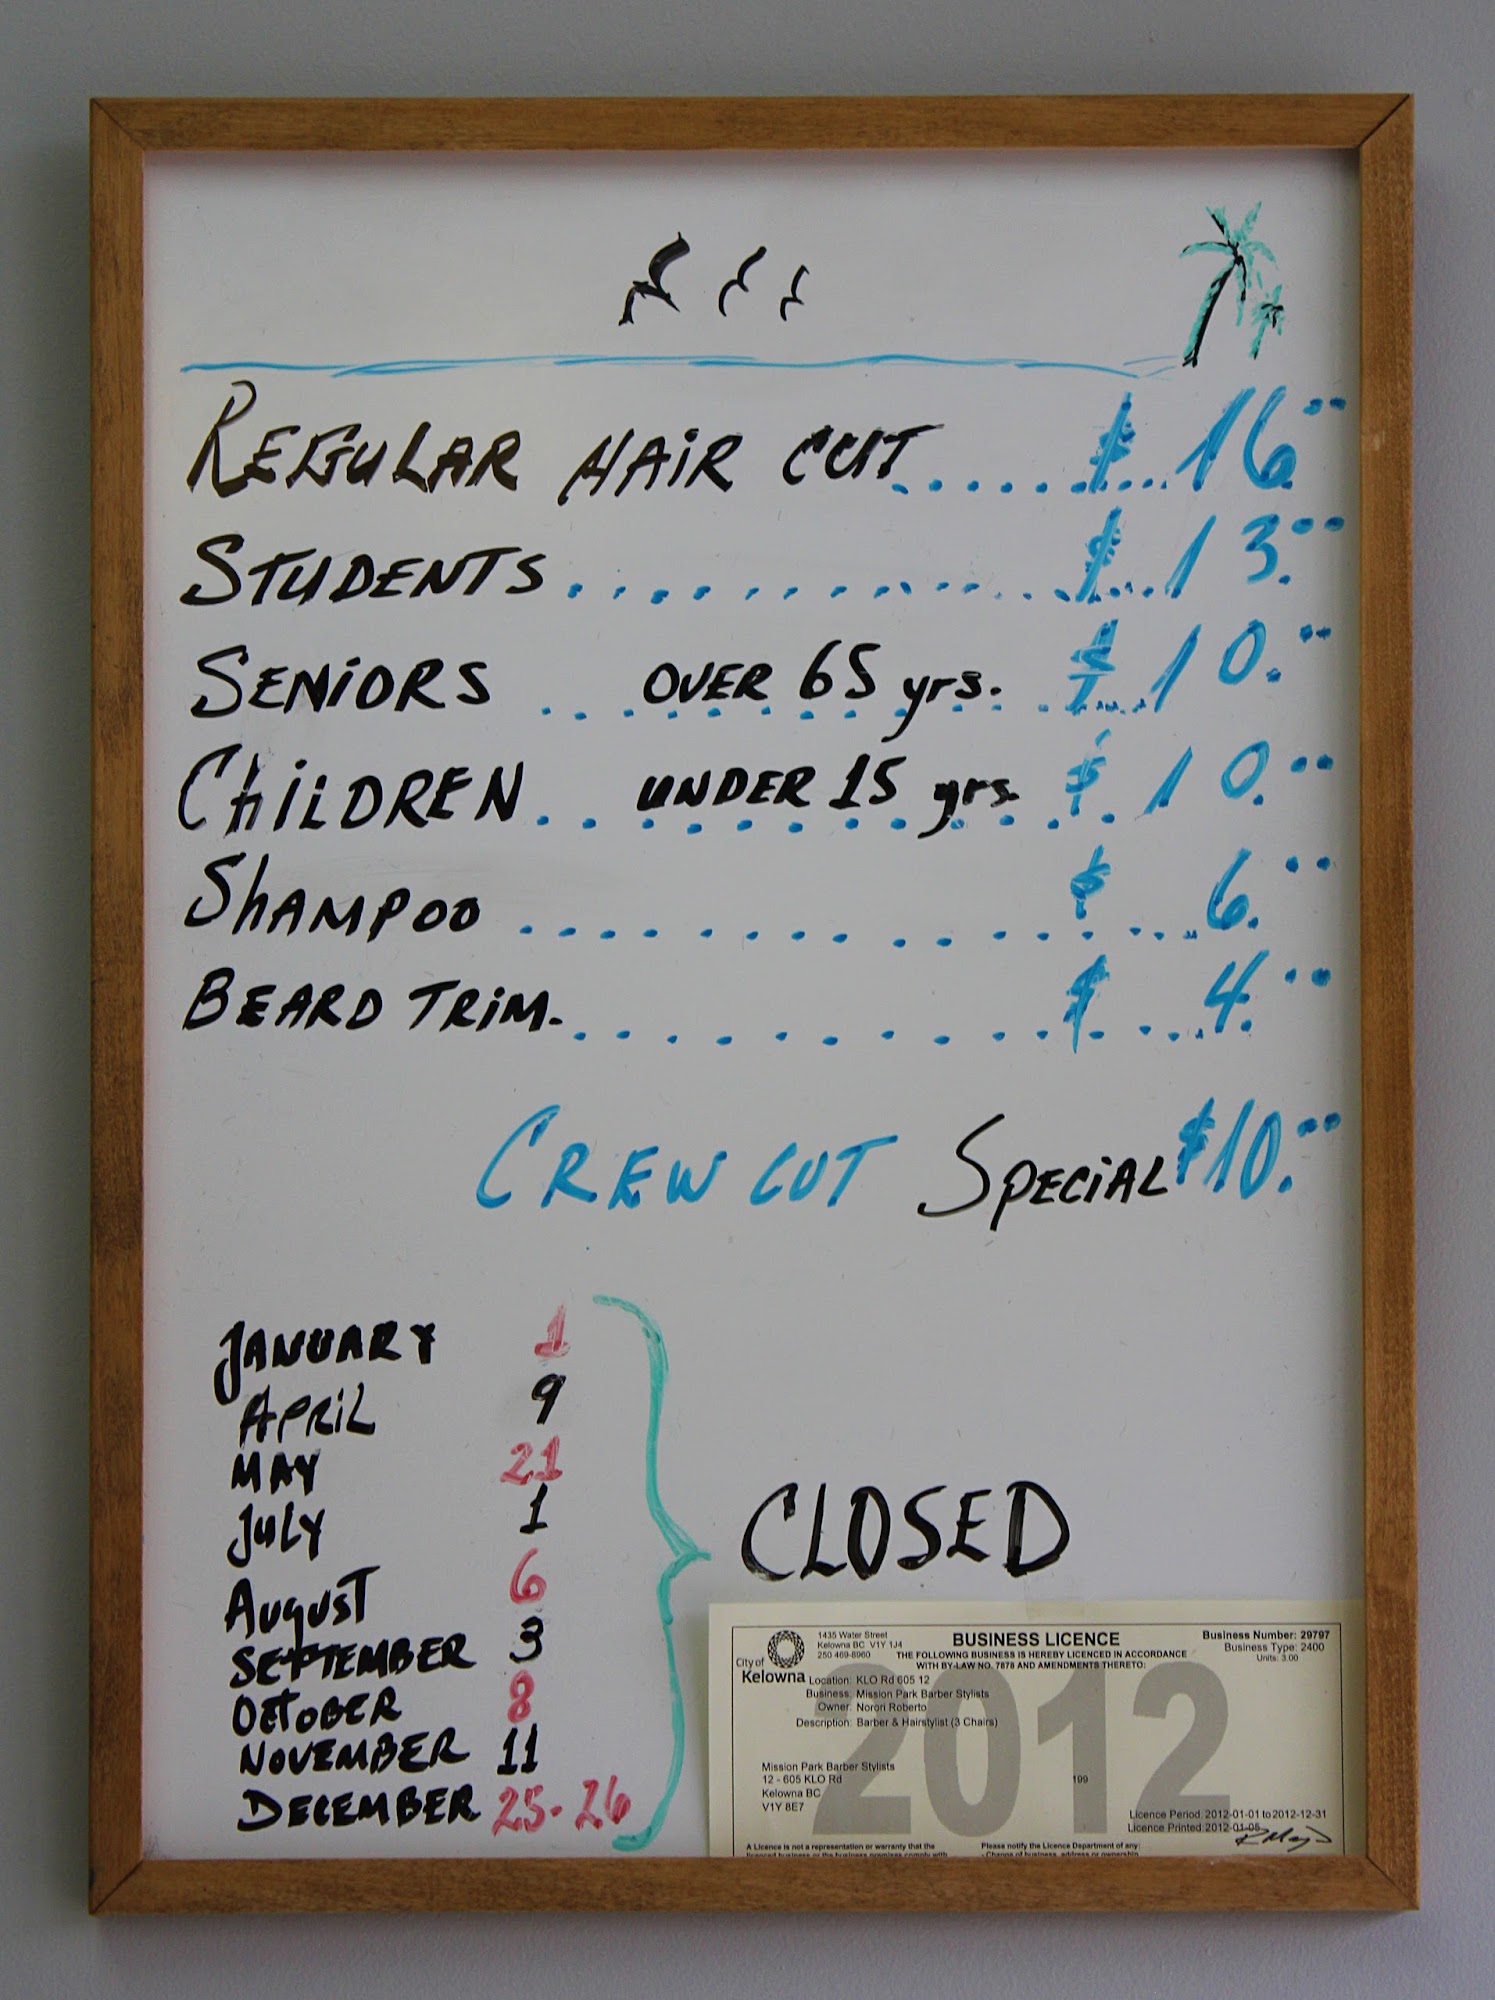 REGULAR HAIR CUT........$...16.00
STUDENTS...............$...13.00
SENIORS .. OVER 65 yrs. $...10.00
CHILDREN.. UNDER 15 yrs. $.10.00
SHAMPOO ............... $ ...6.00
BEARD TRIM............$....4.00
CREW CUT SPECIAL $10.00
JANUARY 1
APRIL 9
MAY 21
JULY 1
AUgUST 6
SEPTEMBER 3
OCTOBER 8
NOVEMBER 11
DECEMBER 25-26
CLOSED
City of
Kelowna
1435 Water Street
Kelowna BC V1Y 1J4
250 469-8960
BUSINESS LICENCE
THE FOLLOWING BUSINESS IS HEREBY LICENCED IN ACCORDANCE
WITH BY-LAW NO. 7878 AND AMENDMENTS THERETO:
Business Number: 29797
Business Type: 2400
Units: 3.00
2012
Location: KLO Rd 605 12
Business: Mission Park Barber Stylists
Owner: Norori Roberto
Description: Barber & Hairstylist (3 Chairs)
Mission Park Barber Stylists
12 - 605 KLO Rd
Kelowna BC
V1Y 8E7
199
Licence Period: 2012-01-01 to 2012-12-31
Licence Printed: 2012-01-05
A Licence is not a representation or warranty that the
licenced business or the business premises comply with
Please notify the Licence Department of any:
- Change of business, address or ownership